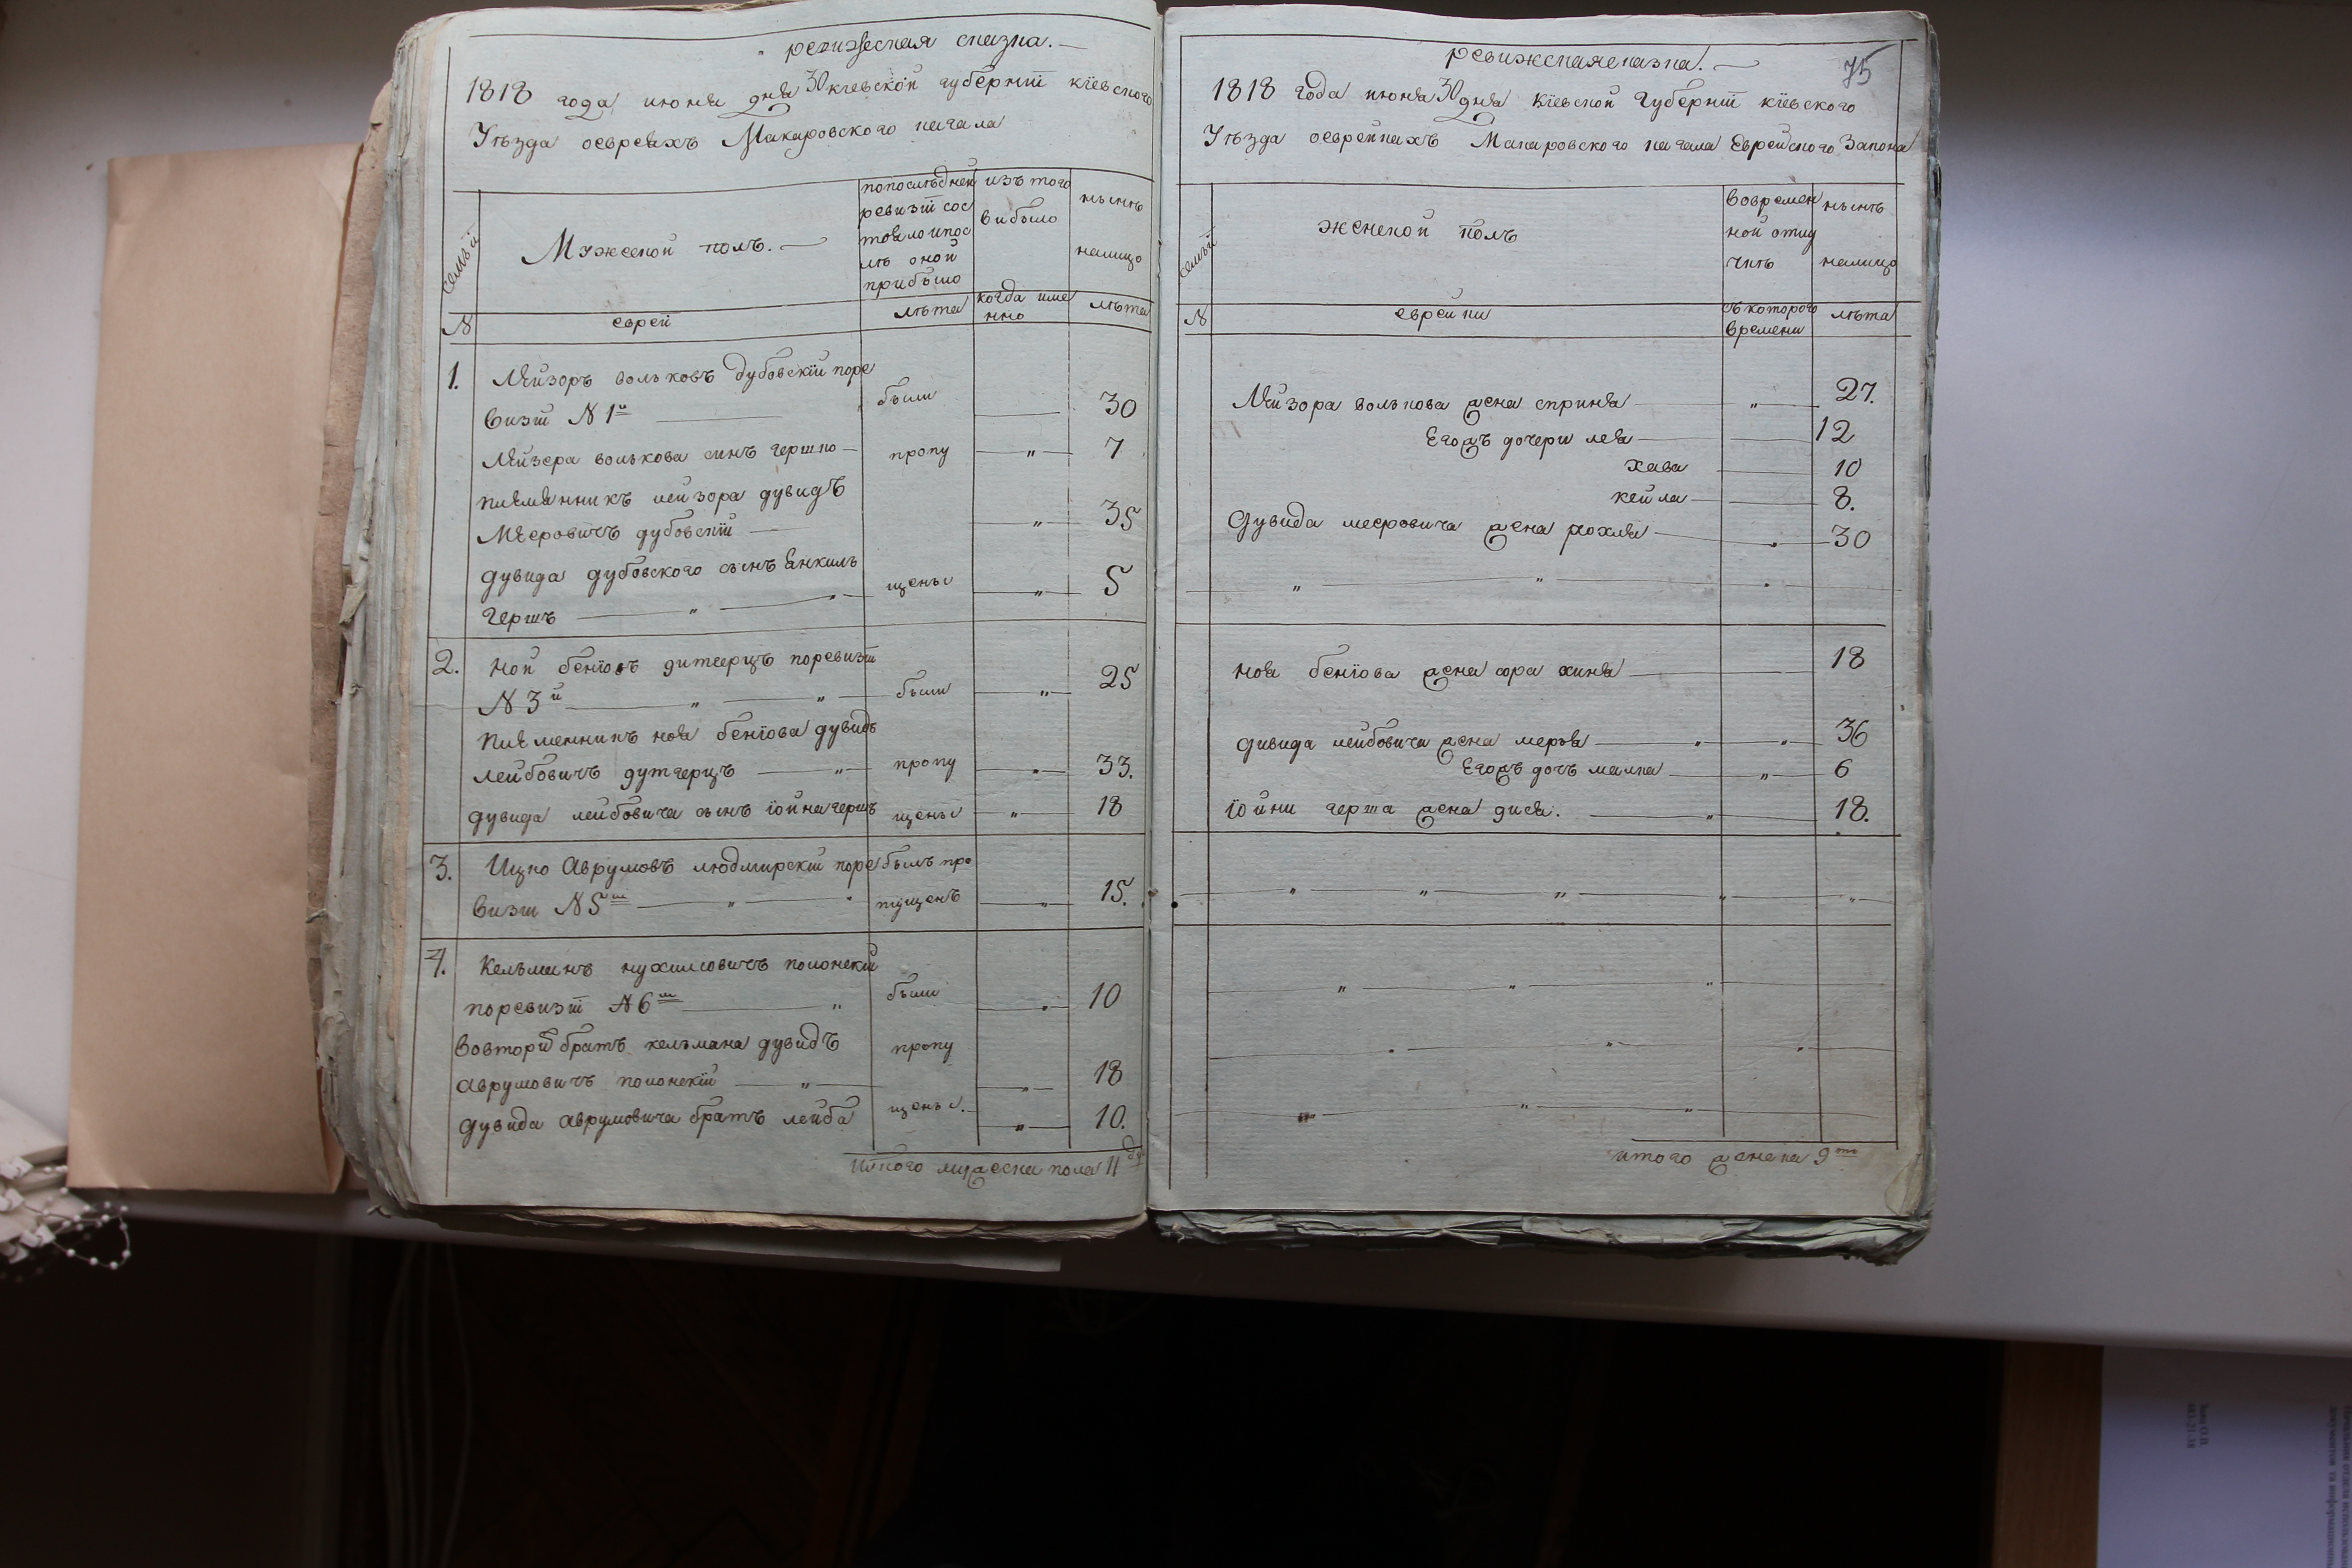 ревижская сказка.
1818 года июня дня 30 кіевской губерніи кіевского
Уѣзда оевреяхъ Макаровского кагала
семьи
Мужеской полъ.
попоследней
ревизіи сос
тояло ипос
лѣ оной
прибыло
изътого
выбыло
нынѣ
налицо
N
еврей
лѣта
когда име
нно
лѣта
1. Лейзоръ вольковъ дубовскій поре
визіи N 1й были 30
Лейзера волькова синъ гершко пропу 7
племянникъ лейзора дувидъ
Мееровичъ дубовскій 35
дувида дубовского сынъ Янкиль щены 5
гершъ
2. Ной бенiовъ дитерцъ поревизіи
N 3й были 25
племенникъ ноя бенiова дувидъ
лейбовичъ дутгерцъ пропу 33.
дувида лейбовича сынъ iойна гершъ щены 18
3. Ицко Аврумовъ людмирскій поре былъ про
визіи N 5ш пущенъ 15.
4. Кельманъ нухимовичъ полонскій
поревизіи N 6ш были 10
вовторій братъ кельмана дувидъ пропу
аврумовичъ полонскій 18
дувида аврумовича братъ лейба щены. 10.
Итого мужеска пола 11 ду
ревижская сказка.
75
1818 года июня 30 дня Кіевской Губерніи кіевского
Уѣзда оеврейкахъ Макаровского кагала Еврейского Закона
семьи
женской полъ
вовремен
ной отлу
чкѣ
нынѣ
налицо
N
еврейки
съ которого
времени
лѣта
Лейзора волькова жена сприня 27.
Егожъ дочери лея 12
хава 10
кейла 8.
Дувида меεровича жена рохля 30
ноя бенiова жена сора хиня 18
дивида лейбовича жена меря 36
Егожъ дочъ малка 6
iойни герша жена дися. 18.
итого женска 9ть